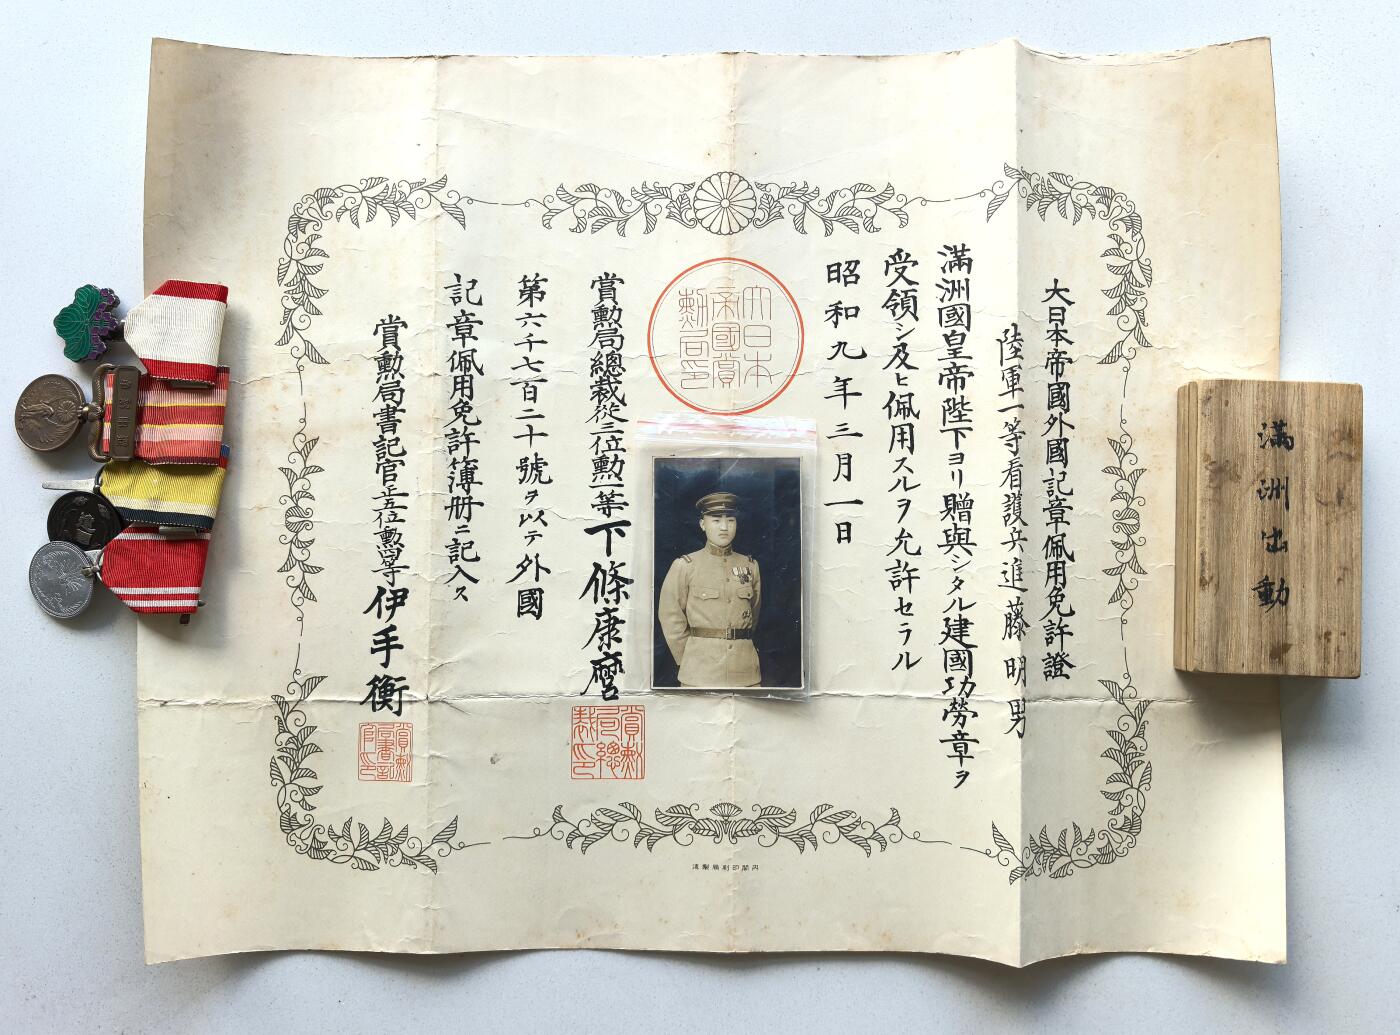 大日本帝國外國記章佩用免許證
陸軍一等看護兵進藤明男
滿洲國皇帝陛下ヨリ贈與シタル建國功勞章ヲ
受領シ及ヒ佩用スルヲ允許セラル
昭和九年三月一日
大日本
帝國賞
勲局印
賞勲局總裁從三位勲一等下條康麿
賞勲
局總
裁印
第六千七百二十號ヲ以テ外國
記章佩用免許簿册ニ記入ス
賞勲局書記官正五位勲等伊手衡
賞勲
局書記
官印
内閣印刷局製造
滿洲出動